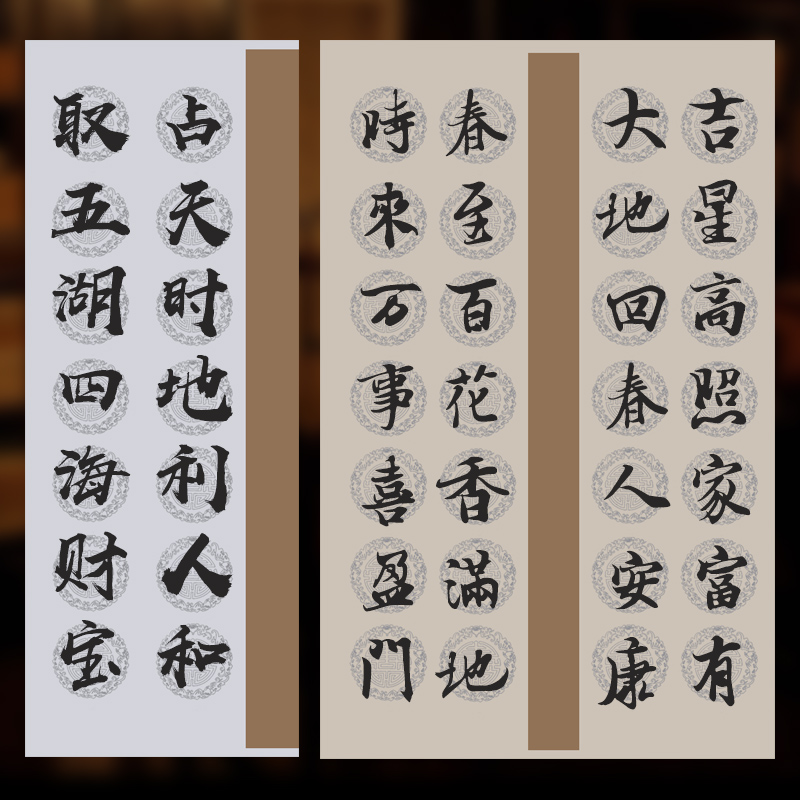 吉星高照家富有
大地回春人安康
春至百花香滿地
時來万事喜盈門
占天时地利人和
取五湖四海财宝